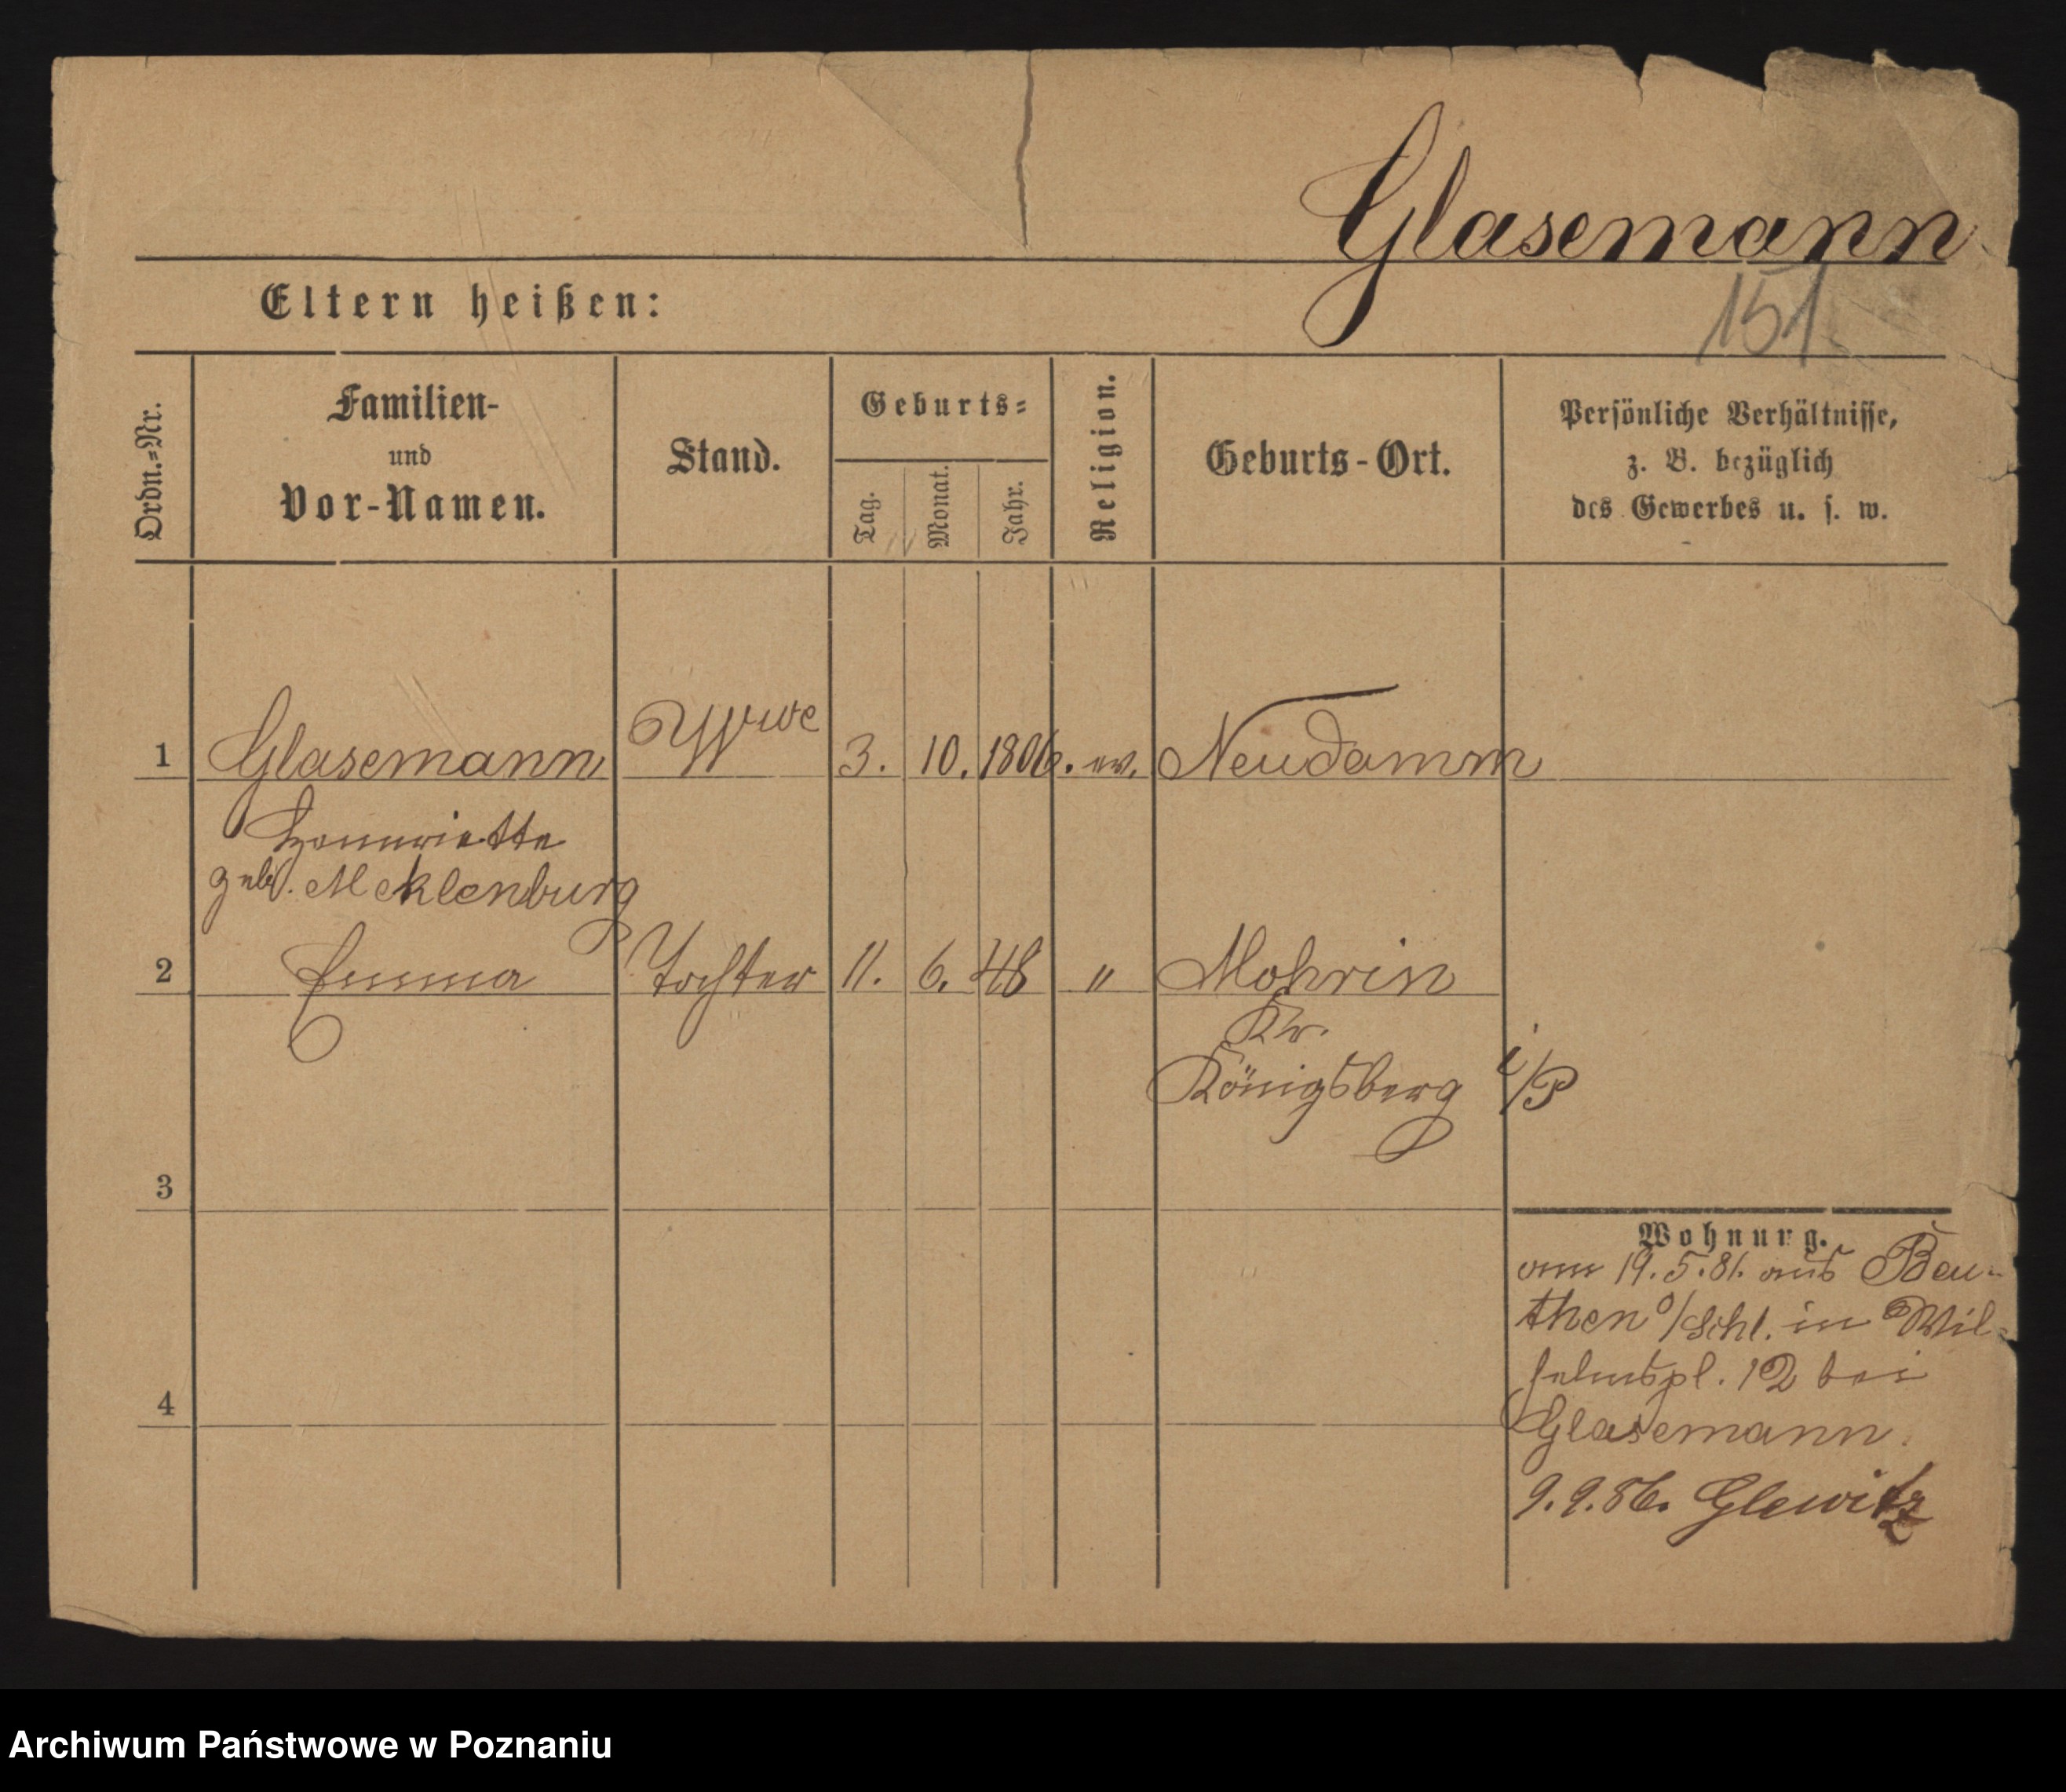 Glasemann
151
Eltern heißen:
Ordn.=Nr.
Familien-
und
Vor-Namen.
Stand.
Geburts=
Tag.
Monat.
Jahr.
Religion.
Geburts-Ort.
Persönliche Verhältnisse,
z. B. bezüglich
des Gewerbes u. s. w.
1 Glasemann Wwe 3. 10. 1806. ev. Neudamm
Hennriette
geb. Meklenburg
2 Emma Tochter 11. 6. 48 " Mohrin
Kr.
Königsberg i/P
3
4
Wohnung.
am 19.5.81. aus Beu-
then o/Schl. in Wil-
helmspl. 12 bei
Glasemann.
9.9.86. Glewitz
Archiwum Państwowe w Poznaniu